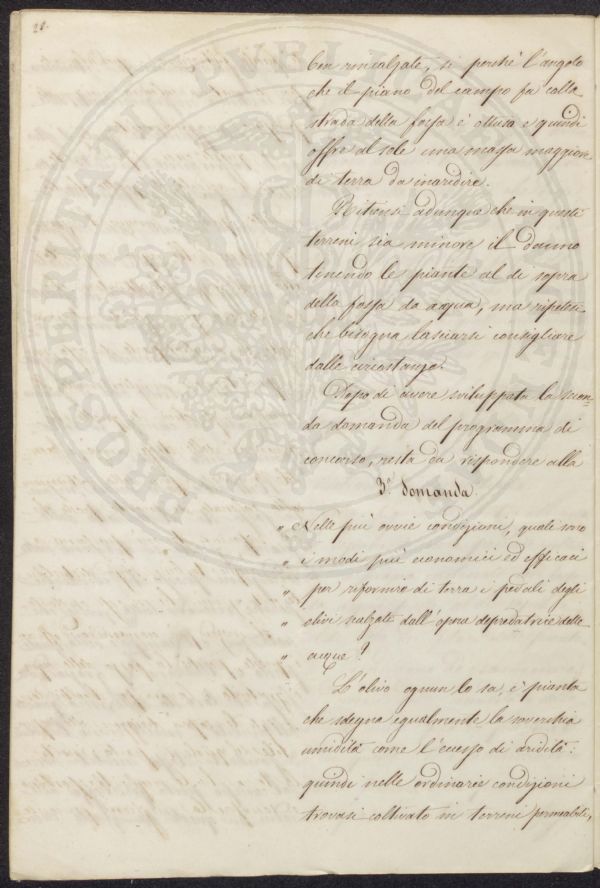 28.
ben rincalzate, si perchè l'angolo
che il piano del campo fa colla
strada della fossa è ottuso e quindi
offre al sole una massa maggiore
di terra da inaridire.
Ritiensi adunque che in questi
terreni sia minore il danno
tenendo le piante al di sopra
della fossa da acqua, ma ripetesi
che bisogna lasciarsi consigliare
dalle circostanze.
Dopo di avere sviluppata la secon-
da domanda del programma di
concorso, resta da rispondere alla
3.a domanda.
" Nelle più ovvie condizioni, quale sono
" i modi più economici ed efficaci
" per rifornire di terra i pedali degli
" olivi scalzati dall'opera depredatrice delle
" acque?
L'olivo ognun lo sa, è pianta
che sdegna egualmente la soverchia
umidità come l'eccesso di aridità:
quindi nelle ordinarie condizioni
trovasi coltivato in terreni permeabili,
PROSPERITATI PUBLICAE